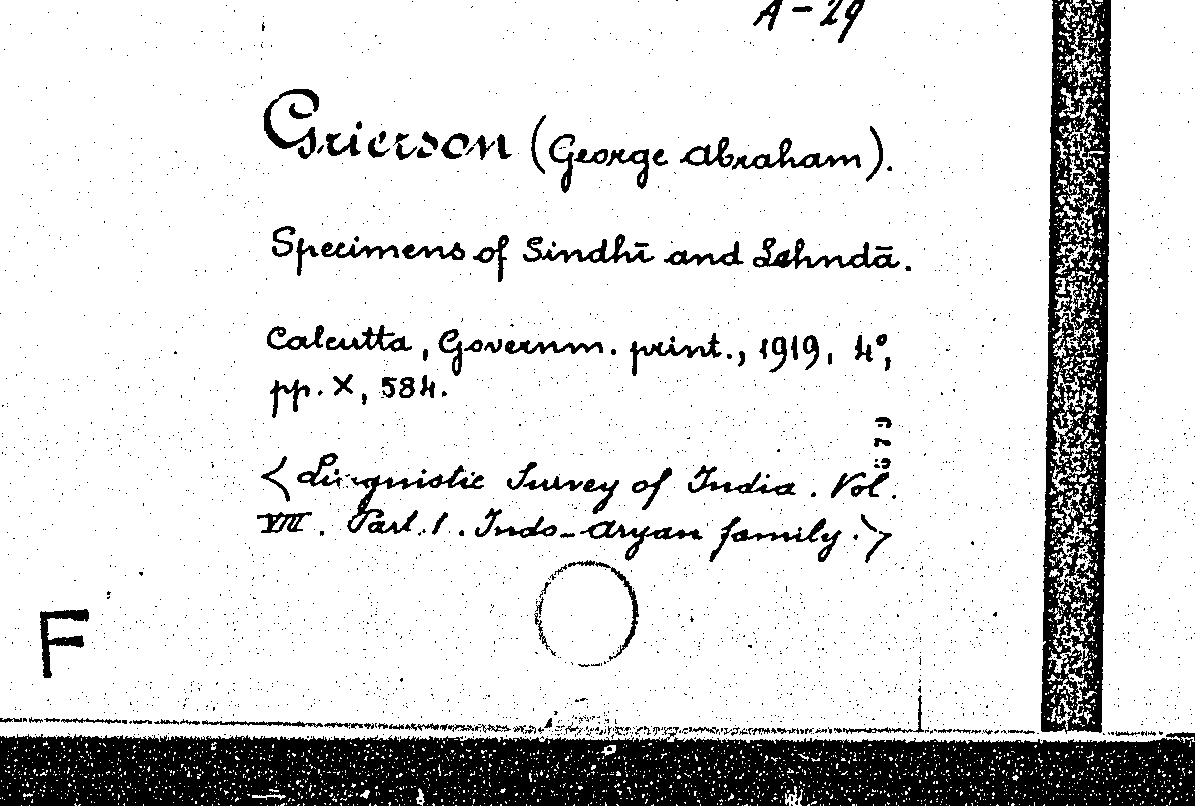 A-29
Grierson (George Abraham).
Specimens of Sindhī and Lehndā.
Calcutta, Governm. print., 1919, 4°,
pp. X, 584.
679
<Linguistic Survey of India. Vol.
VIII. Part. 1. Indo-Aryan family.>
F